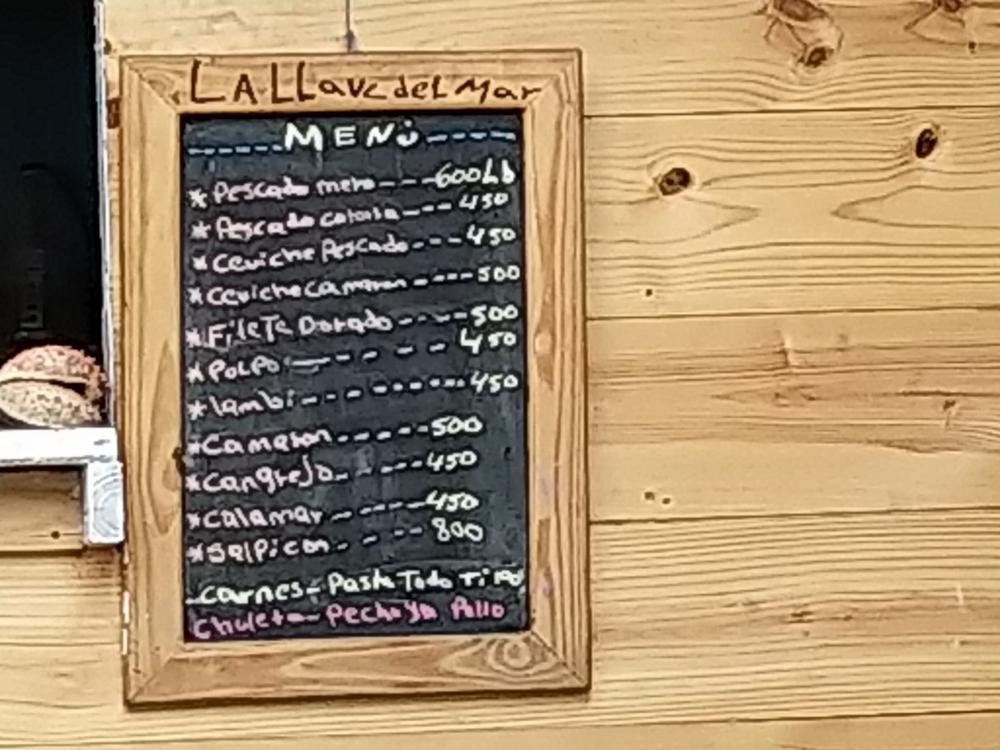 LA LLave del Mar
------MENÚ-----
*Pescado mero---600Lb
*Pescado---450
*Ceviche Pescado----450
*Ceviche Camaron----500
*FileTe Dorado----500
*PolPo - - - 450
*lambi---------450
*Camaron-----500
*Cangrejo-----450
*Calamar-----450
*Salpicon----800
Carnes-Pasta Todo Tipo
Chuleta-Pechuga Pollo